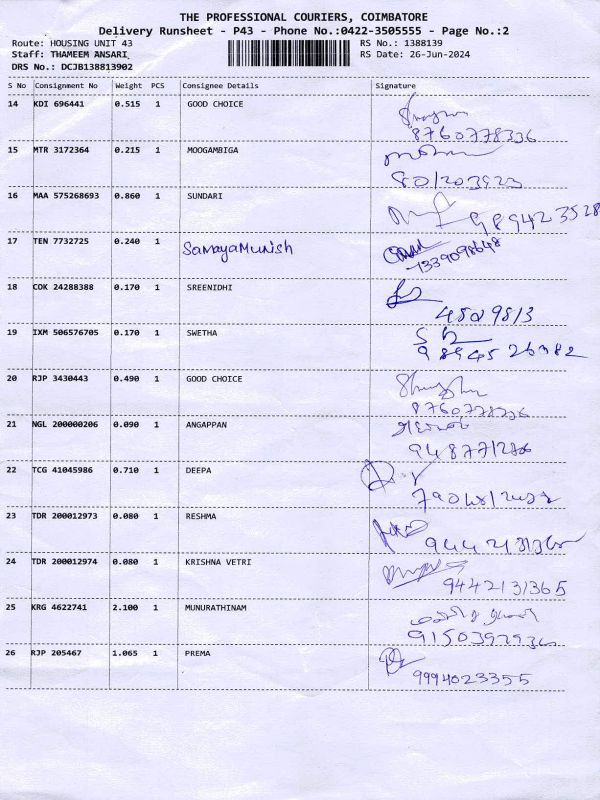 THE PROFESSIONAL COURIERS, COIMBATORE
Delivery Runsheet - P43 - Phone No.:0422-3505555 - Page No.:2
Route: HOUSING UNIT 43 RS No.: 1388139
Staff: THAMEEM ANSARI RS Date: 26-Jun-2024
DRS No.: DCJB138813902
S No Consignment No Weight PCS Consignee Details Signature
14 KDI 696441 0.515 1 GOOD CHOICE
8760778336
15 MTR 3172364 0.215 1 MOOGAMBIGA
16 MAA 575268693 0.860 1 SUNDARI
989423528
17 TEN 7732725 0.240 1 SamayaMunish
7339098648
18 COK 24288388 0.170 1 SREENIDHI
19 IXM 506576705 0.170 1 SWETHA
20 RJP 3430443 0.490 1 GOOD CHOICE
21 NGL 200000206 0.090 1 ANGAPPAN
22 TCG 41045986 0.710 1 DEEPA
23 TDR 200012973 0.080 1 RESHMA
24 TDR 200012974 0.080 1 KRISHNA VETRI
9442131365
25 KRG 4622741 2.100 1 MUNURATHINAM
26 RJP 205467 1.065 1 PREMA
9994023355